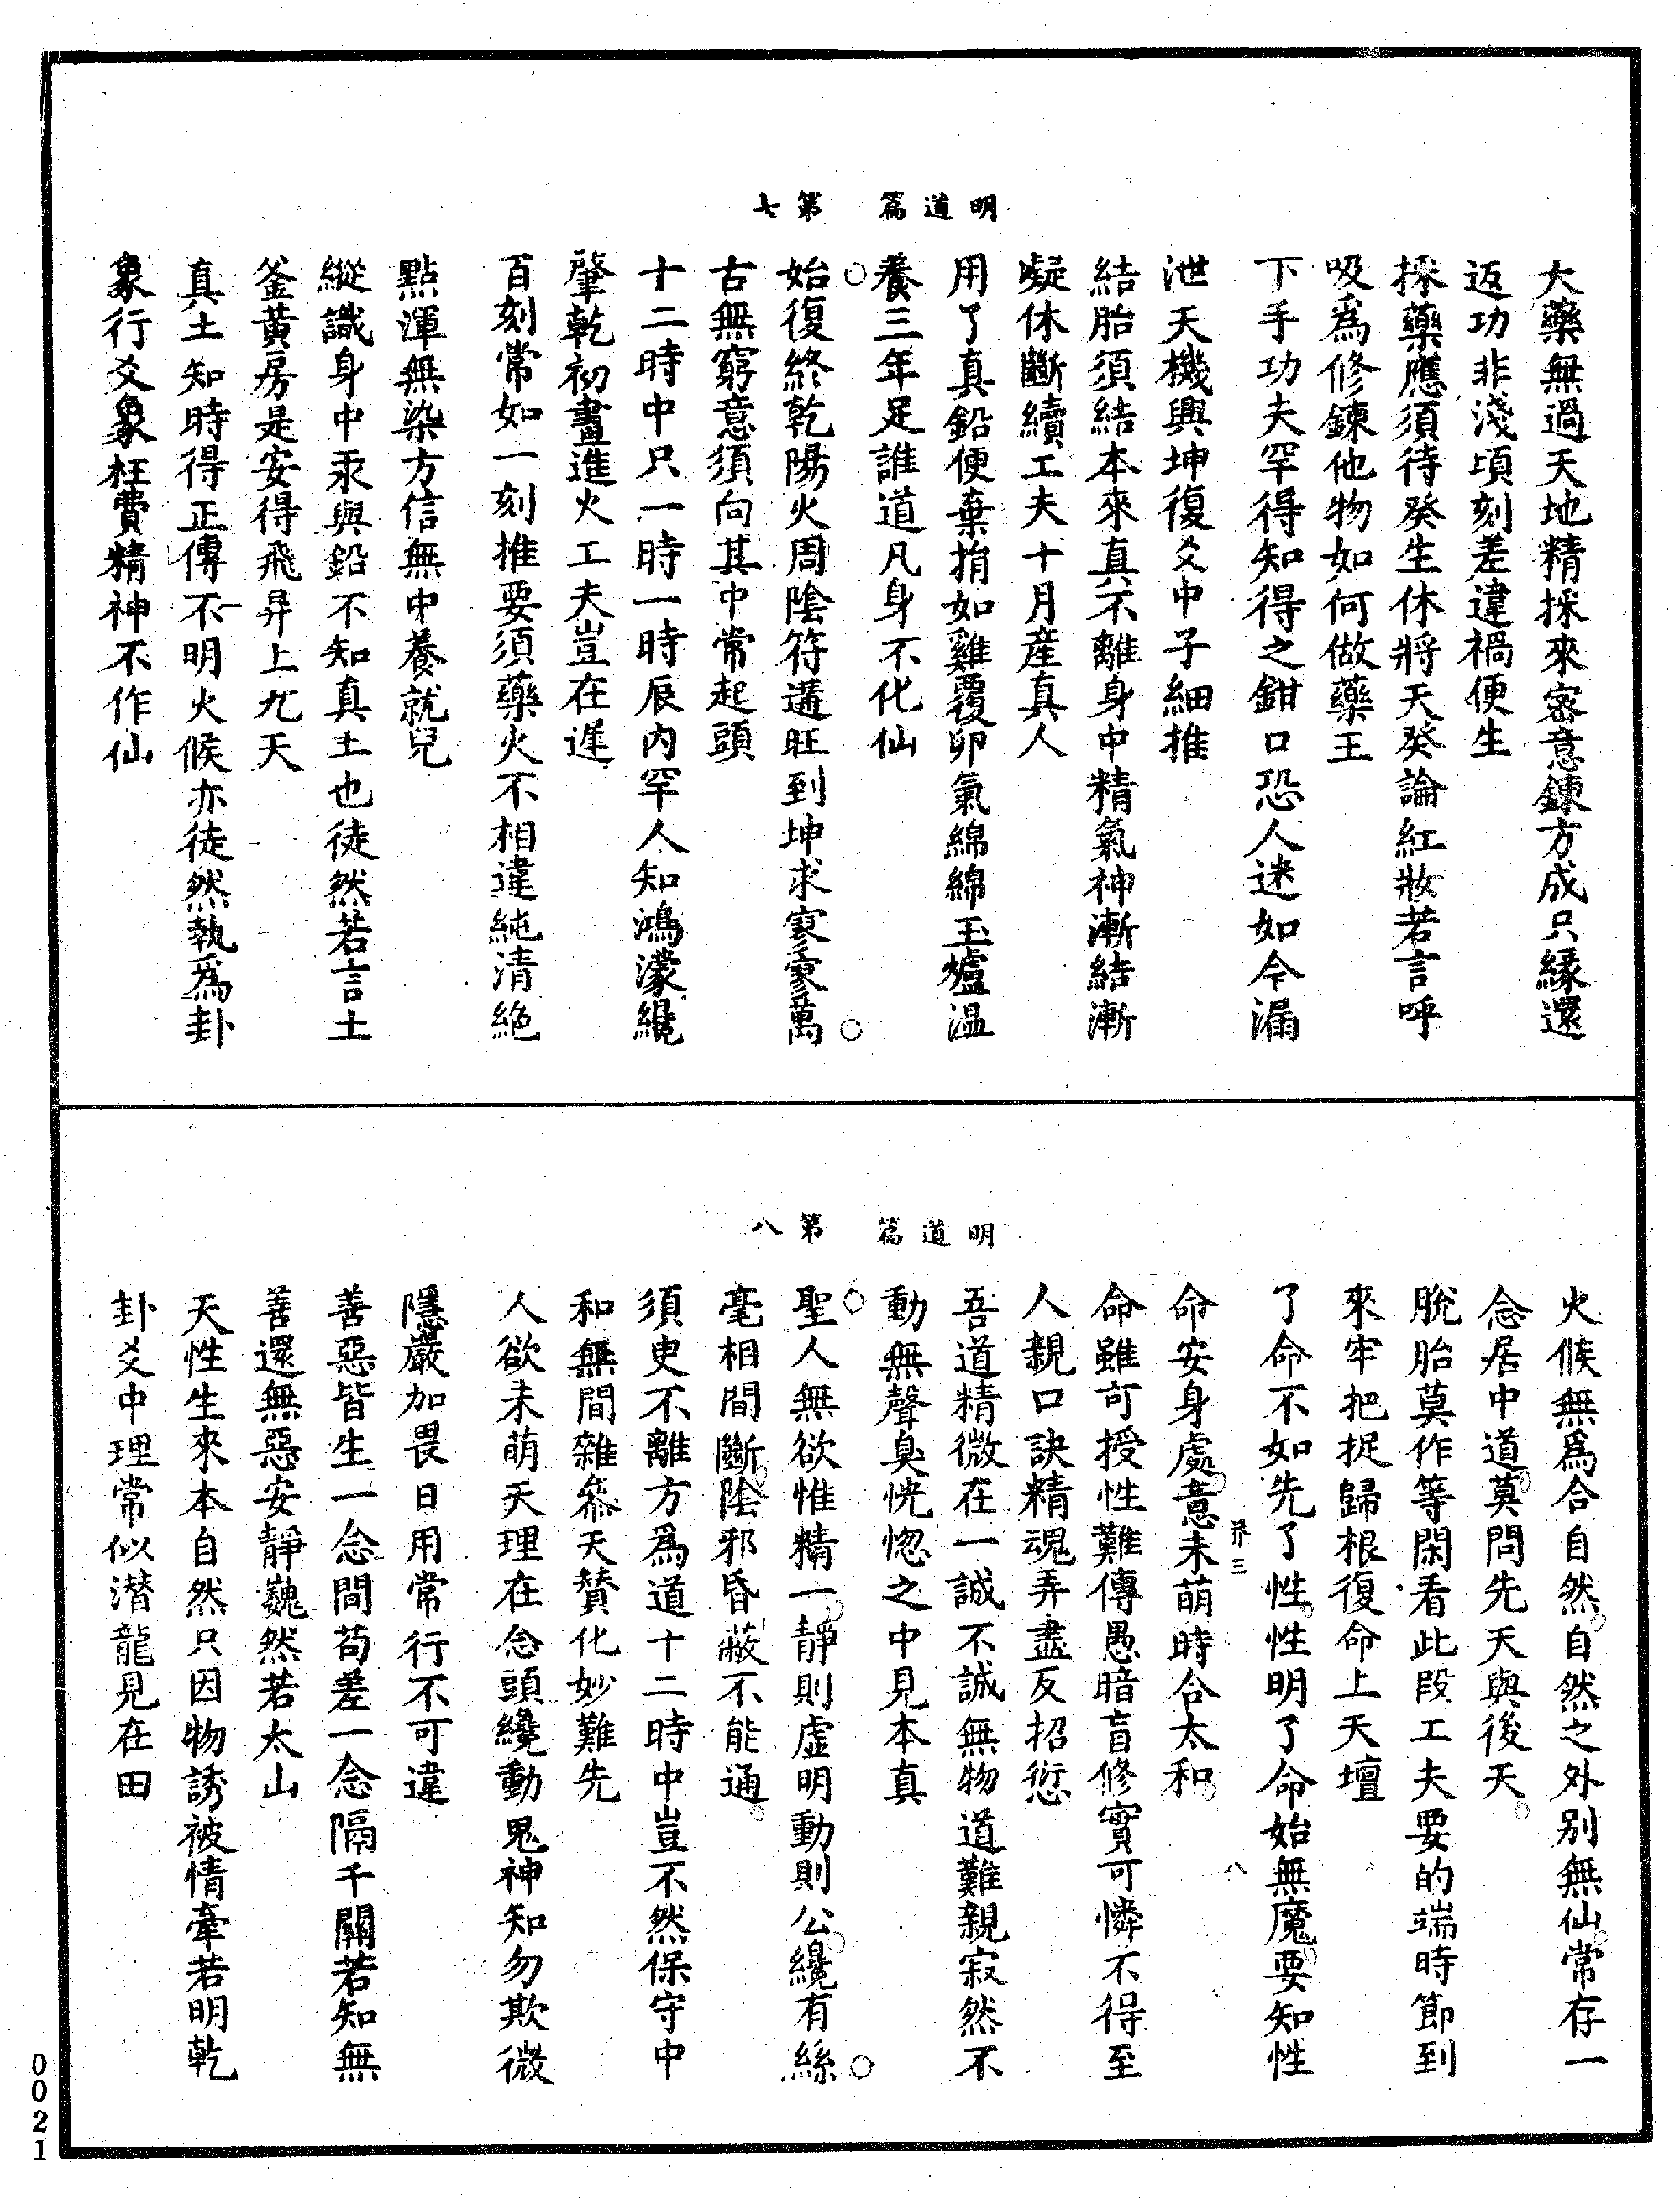 明道篇　第七
大藥無過天地精採來密意鍊方成只緣還
返功非淺頃刻差違禍便生
採藥應須待癸生休將天癸論紅妝若言呼
吸爲修鍊他物如何做藥王
下手功夫罕得知得之鉗口恐人迷如今漏
泄天機興坤復爻中子細推
結胎須結本來真不離身中精氣神漸結漸
凝休斷續工夫十月産真人
用了真鉛便棄捐如雞覆卵氣綿綿玉爐温
養三年足誰道凡身不化仙
始復終乾陽火周陰符遘旺到坤求寥寥萬
古無窮意須向其中常起頭
十二時中只一時一時辰内罕人知鴻濛纔
肇乾初畫進火工夫豈在遲
百刻常如一刻推要須藥火不相違純清絶
點渾無染方信無中養就兒
縱識身中汞與鉛不知真土也徒然若言土
釜黄房是安得飛昇上九天
真土知時得正傳不明火候亦徒然執爲卦
象行爻象枉費精神不作仙
明道篇　第八
火候無爲合自然自然之外别無仙常存一
念居中道莫問先天與後天
脱胎莫作等閑看此段工夫要的端時節到
來牢把捉歸根復命上天壇
了命不如先了性性明了命始無魔要知性
命安身處意未萌時合太和
芥三
八
命雖可授性難傳愚暗盲修實可憐不得至
人親口訣精魂弄盡反招愆
吾道精微在一誠不誠無物道難親寂然不
動無聲臭恍惚之中見本真
聖人無欲惟精一靜則虛明動則公纔有絲
毫相間斷陰邪昏蔽不能通
須臾不離方爲道十二時中豈不然保守中
和無間雜叅天贊化妙難先
人欲未萌天理在念頭纔動鬼神知勿欺微
隱嚴加畏日用常行不可違
善惡皆生一念間苟差一念隔千關若知無
善還無惡安靜巍然若太山
天性生來本自然只因物誘被情牽若明乾
卦爻中理常似潛龍見在田
0021